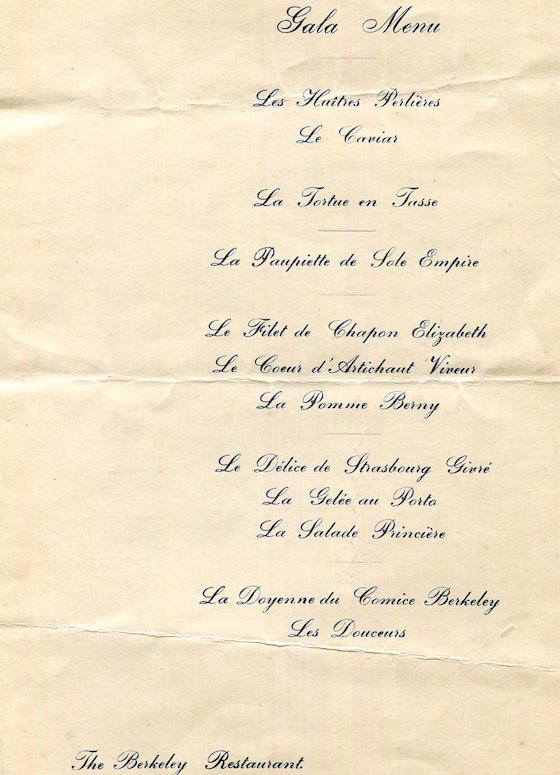 Gala Menu
Les Haîtres Perlières
Le Caviar
La Tortue en Tasse
La Paupiette de Sole Empire
Le Filet de Chapon Elizabeth
Le Coeur d'Artichaut Viveur
La Pomme Berny
Le Délice de Strasbourg Givré
La Gelée au Porto
La Salade Princière
La Doyenne du Comice Berkeley
Les Douceurs
The Berkeley Restaurant.